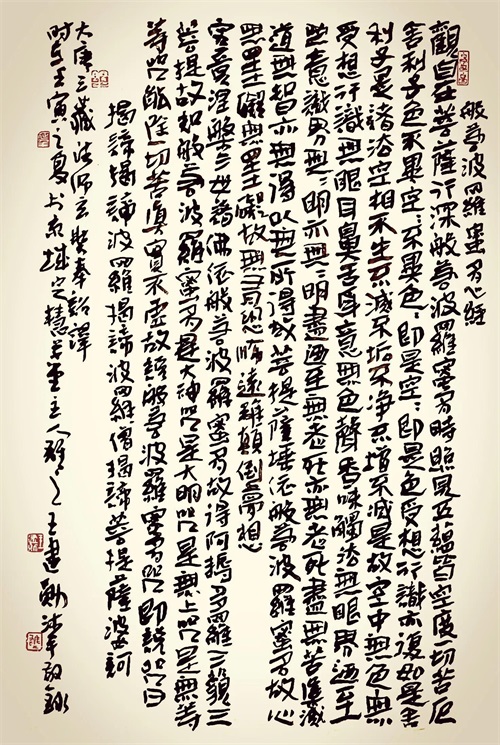 般若波羅蜜多心經
觀自在菩薩行深般若波羅蜜多時照見五蘊皆空度一切苦厄
舍利子色不異空々不異色々即是空々即是色受想行識亦復如是舍
利子是諸法空相不生不滅不垢不净不增不減是故空中無色無
受想行識無眼耳鼻舌身意無色聲香味觸法無眼界迺至
無意識界無々明亦無々明盡迺至無老死亦無老死盡無苦集滅
道無智亦無得以無所得故菩提薩埵依般若波羅蜜多故心
無罣礙無罣礙故無有恐怖遠離顛倒夢想
究竟涅槃三世諸佛依般若波羅蜜多故得阿耨多羅三藐三
菩提故知般若波羅蜜多是大神咒是大明咒是無上咒是無等
等咒能除一切苦真實不虛故說般若波羅蜜多咒即說咒曰
揭諦揭諦波羅揭諦波羅僧揭諦菩提薩婆訶
大唐三藏法師玄奘奉詔譯
時于壬寅之夏於京城定慧堂主人王建勳沐手敬錄